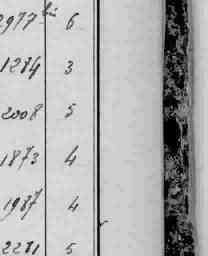 2977 bis 6
1284 3
2008 5
1873 4
1987 4
2281 5